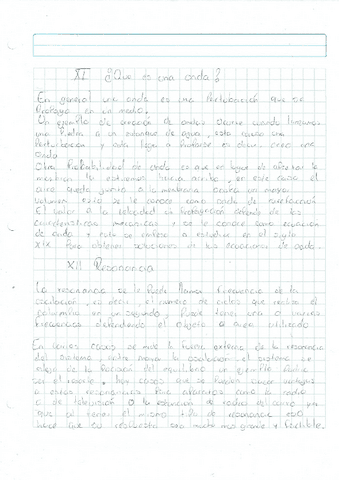 XI ¿Que es una onda?
En general una onda es una Perturbación que se
Propaga en un medio.
Un ejemplo de creación de ondas ocurre cuando lanzamos
una Piedra a un estanque de agua, esto causa una
Perturbación y esta llega a es decir, crea una
onda
Otra Posibilidad de onda es que en lugar de afectar la
membrana la hacia arriba, en este caso el
aire queda junto a la membrana ocupa un mayor
volumen esto se le conoce como onda de rarefacción
El valor a la velocidad de Propagación depende de las
características mecanicas y se le conoce como ecuación
de onda y esto se empezo a estudiar en el siglo
XIX Para obtener soluciones de las ecuaciones de onda.
XII Resonancia
La resonancia se le Puede llamar frecuencia de la
oscilación, es decir, el numero de ciclos que realiza el
en un segundo, Puede tener una o varias
frecuencias dependiendo el objeto o area utilizado
En varios casos se mueve la fuerza externa de la resonancia
del sistema, entre mayor la oscilación el sistema se
aleja de la Posición del equilibrio un ejemplo Podría
ser el resorte, hay casos que se Pueden sacar ventajas
a estas resonancias Para aparatos como la radio
o de televisión o la estación de radio del carro ya
que al tener el mismo tipo de resonancia eso
hace que su respuesta sea mucho mas grande y factible.